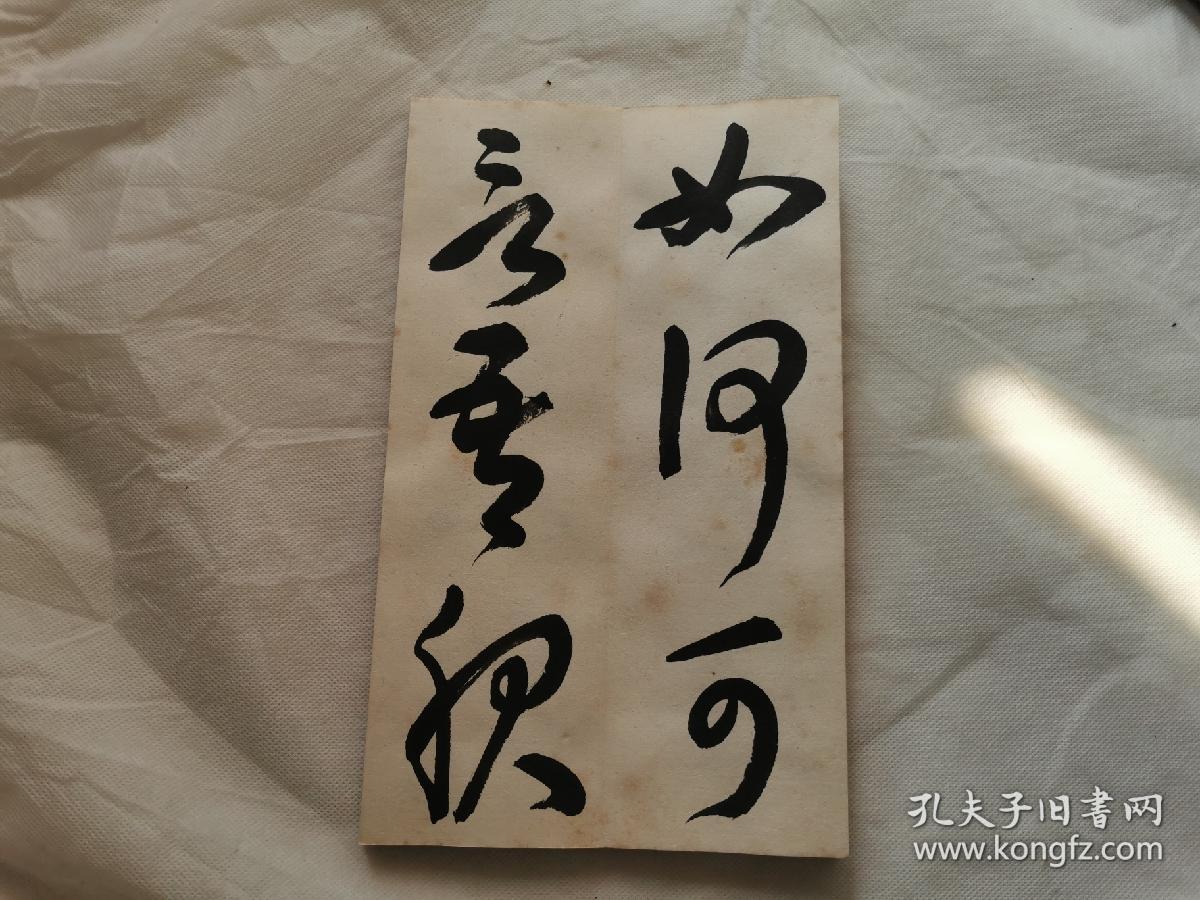 如何可
言吾服
孔夫子旧書网
www.kongfz.com